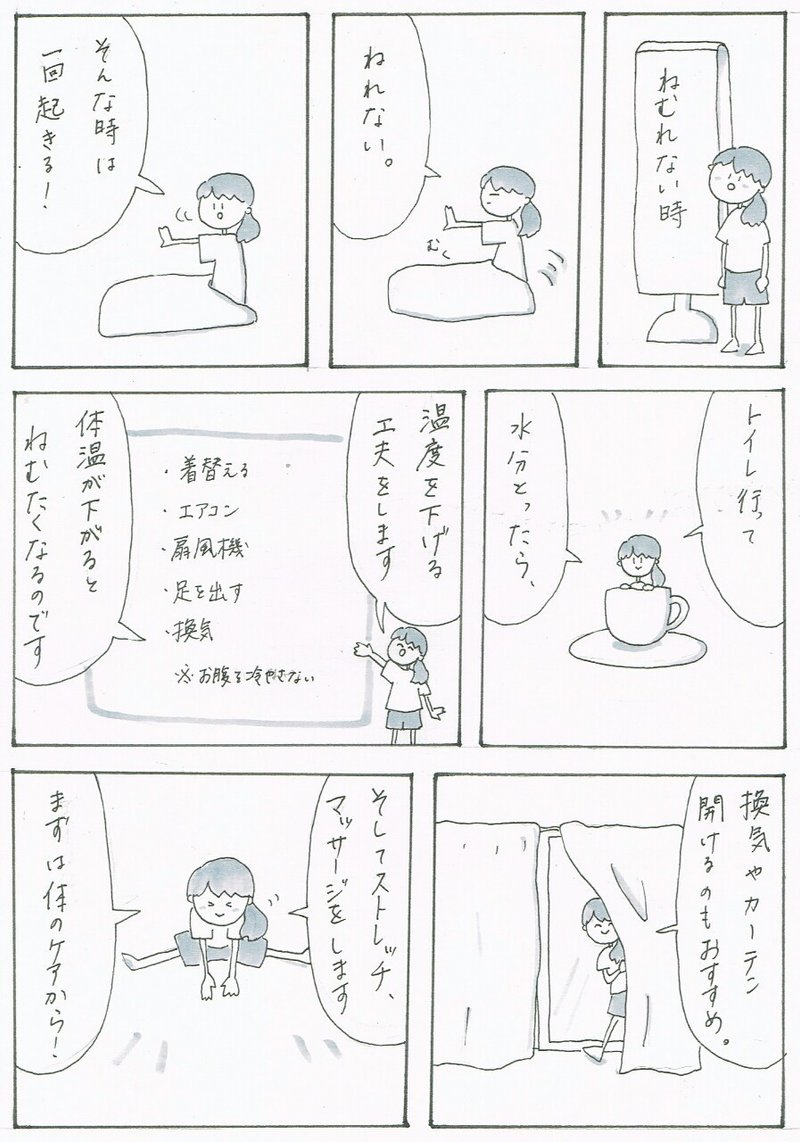 ねむれない時
ねれない。
むく
そんな時は
一回起きる！
トイレ行って
水分とったら、
温度を下げる
工夫をします
・着替える
・エアコン
・扇風機
・足を出す
・換気
※お腹を冷やさない
体温が下がると
ねむたくなるのです
換気やカーテン
開けるのもおすすめ。
そしてストレッチ、
マッサージをします
まずは体のケアから！